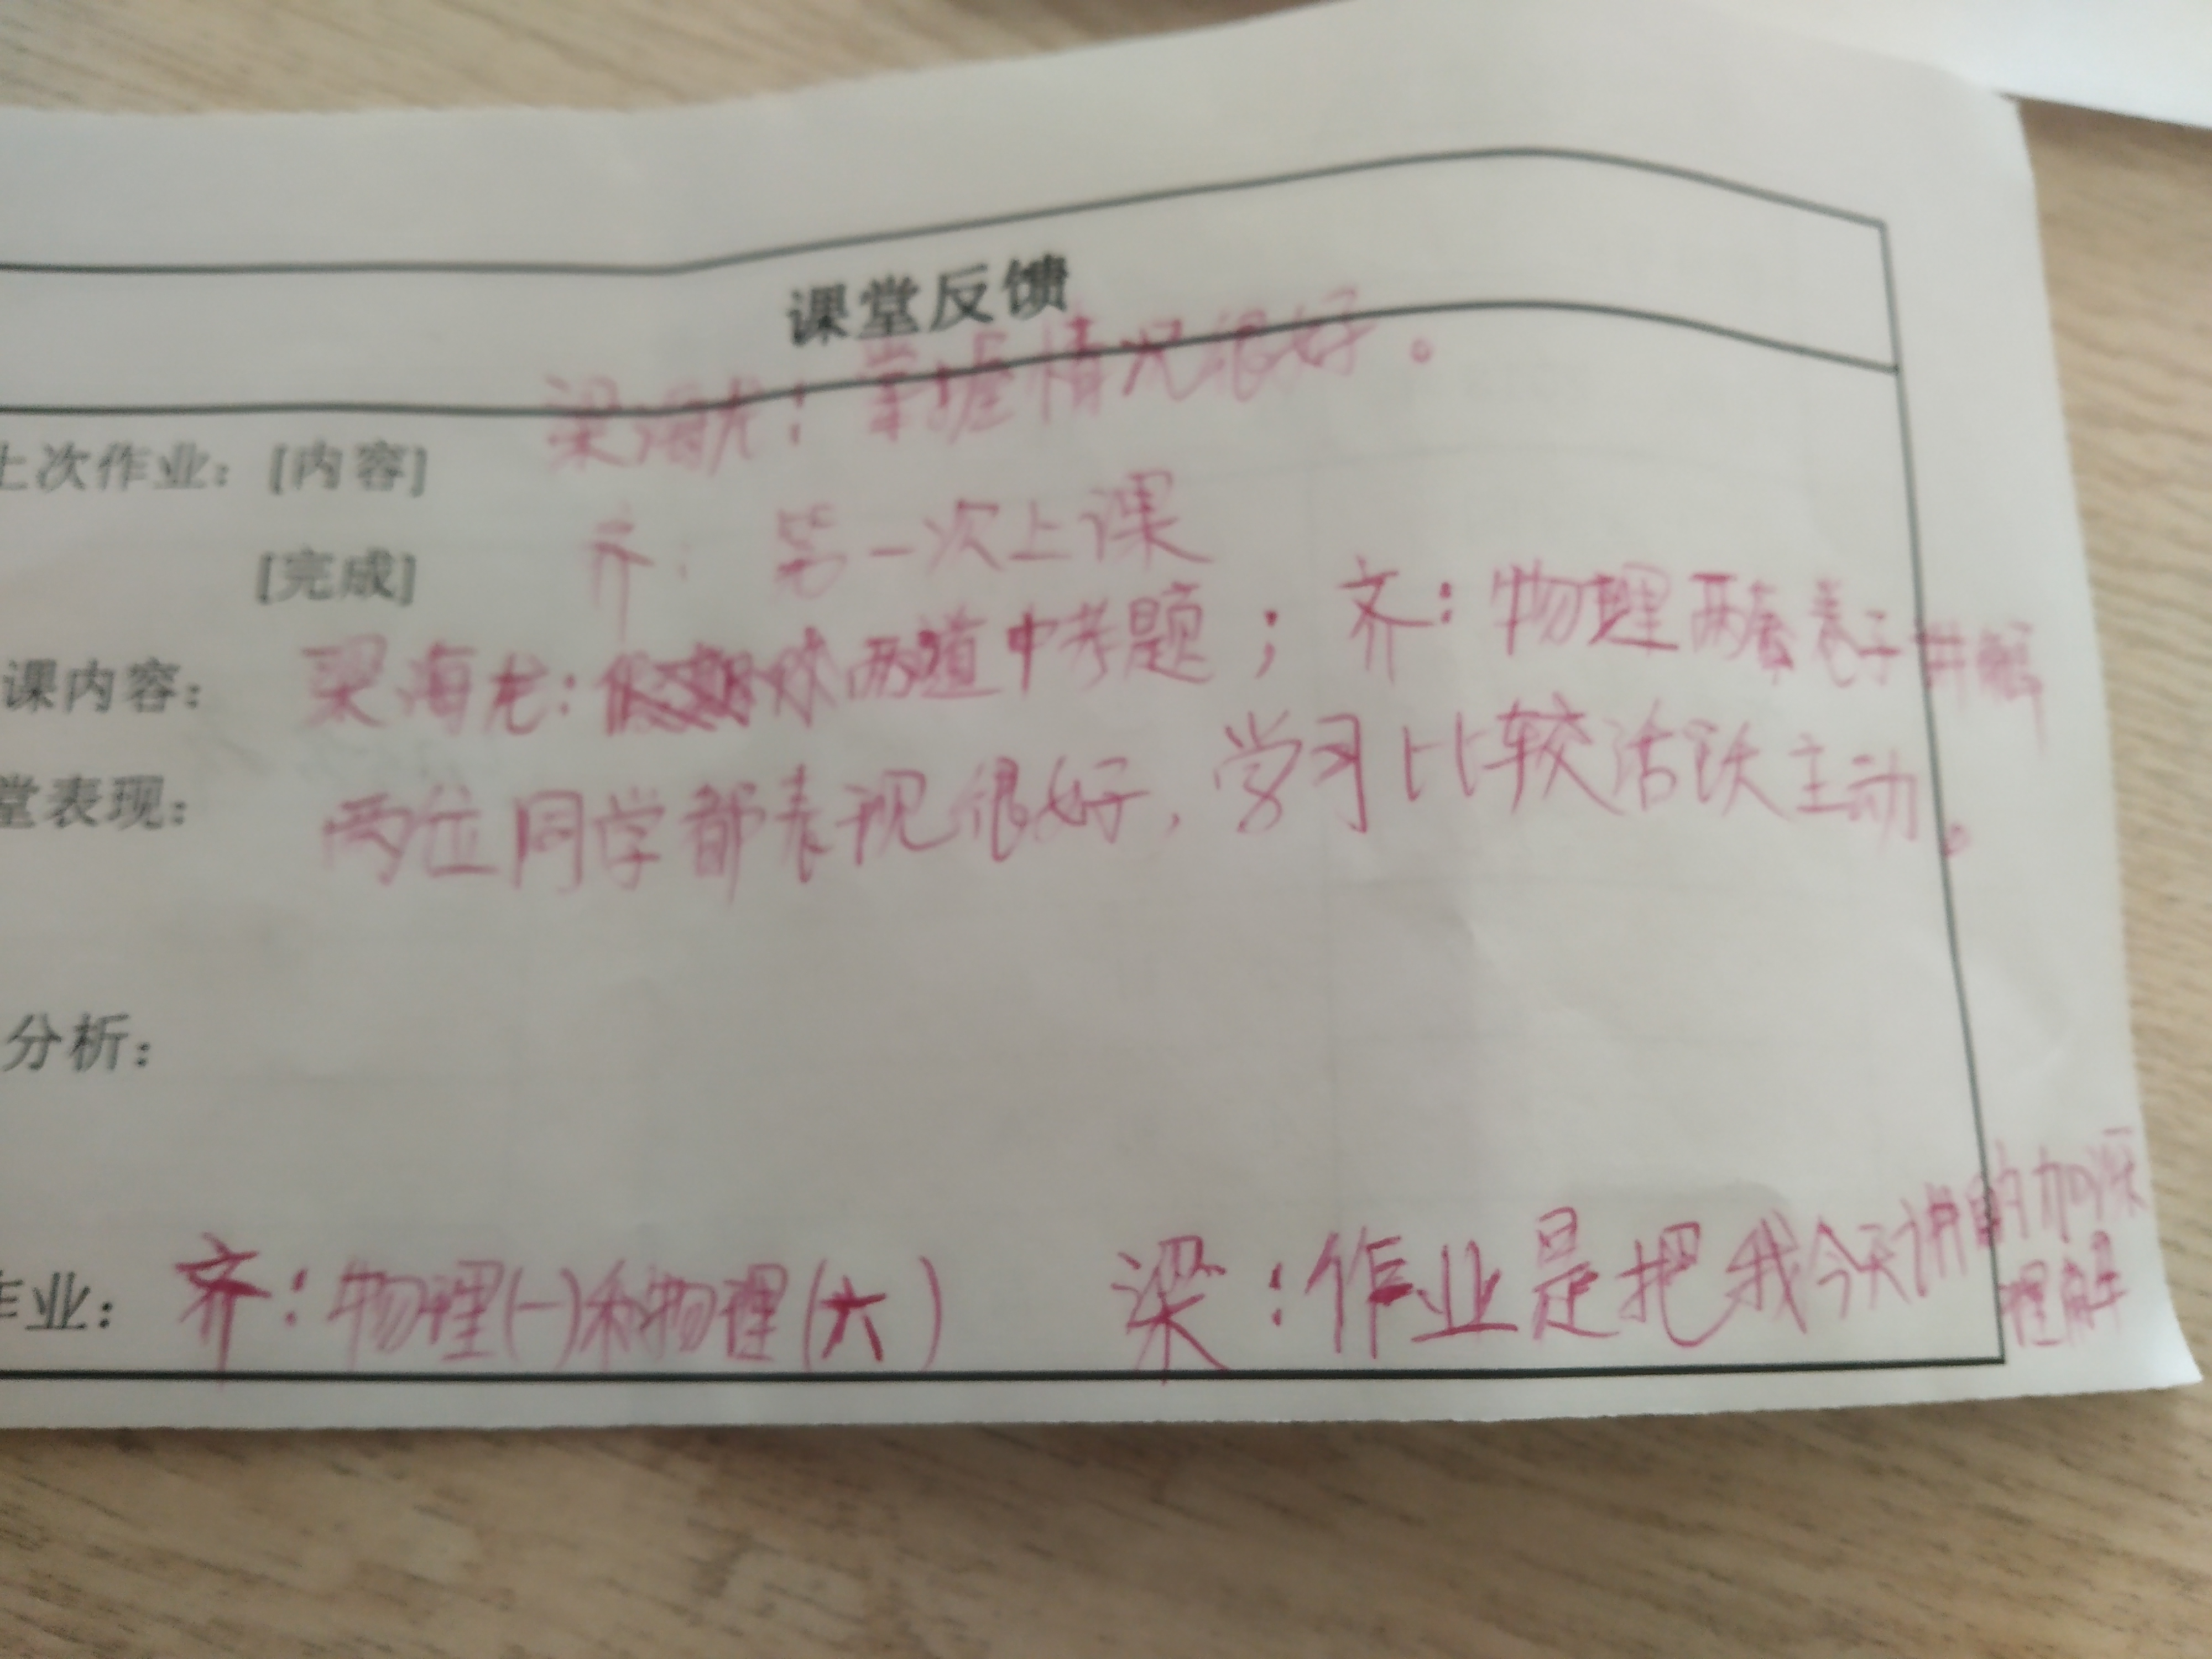 课堂反馈
梁海龙：掌握情况很好。
上次作业：[内容]
齐：第一次上课
[完成]
课内容：梁海龙：两道中考题；齐：物理两套卷子讲解
堂表现：两位同学都表现很好，学习比较活跃主动。
分析：
作业：齐：物理(一)和物理(六) 梁：作业是把我今天讲的加深
理解